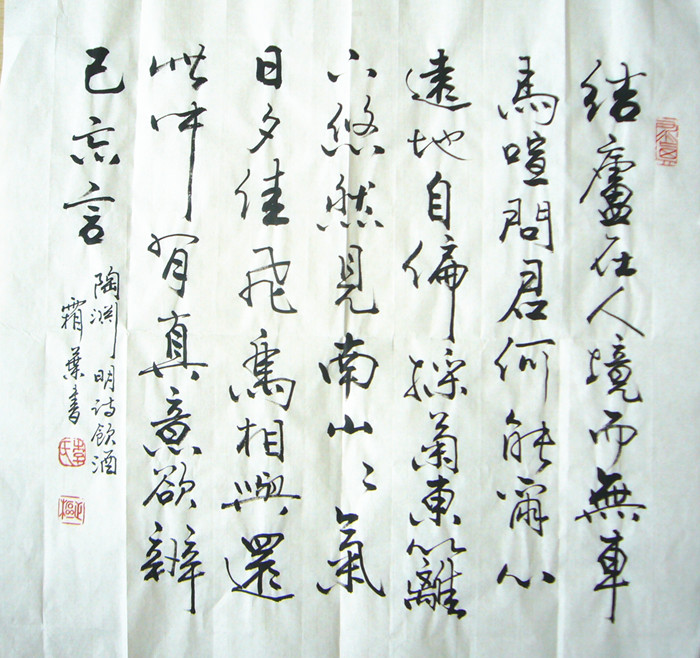 結廬在人境而無車
馬喧問君何能爾心
遠地自偏採菊東籬
下悠然見南山〻氣
日夕佳飛鳥相與還
此中有真意欲辨
已忘言
陶淵明詩飲酒
霜葉書